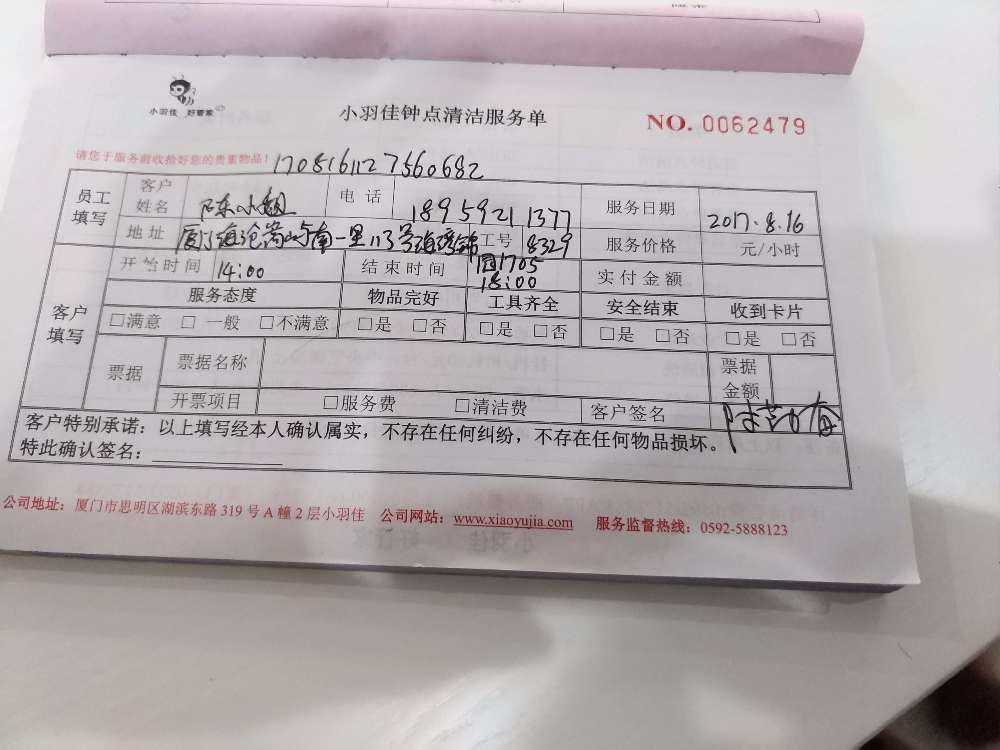 小羽佳 好管家
小羽佳钟点清洁服务单
NO. 0062479
请您于服务前收拾好您的贵重物品!
1708161127560682
员工填写 客户姓名 陈小姐 电话 18959211377 服务日期 2017.8.16
地址 厦门海沧 南一里113号海 工号 8329 服务价格 元/小时
园1705
开始时间 14:00 结束时间 18:00 实付金额
客户填写 服务态度 物品完好 工具齐全 安全结束 收到卡片
□满意 □一般 □不满意 □是 □否 □是 □否 □是 □否 □是 □否
票据 票据名称 票据金额
开票项目 □服务费 □清洁费 客户签名 陈
客户特别承诺：以上填写经本人确认属实，不存在任何纠纷，不存在任何物品损坏。
特此确认签名：
公司地址：厦门市思明区湖滨东路 319 号 A 幢 2 层小羽佳 公司网站：www.xiaoyujia.com 服务监督热线：0592-5888123